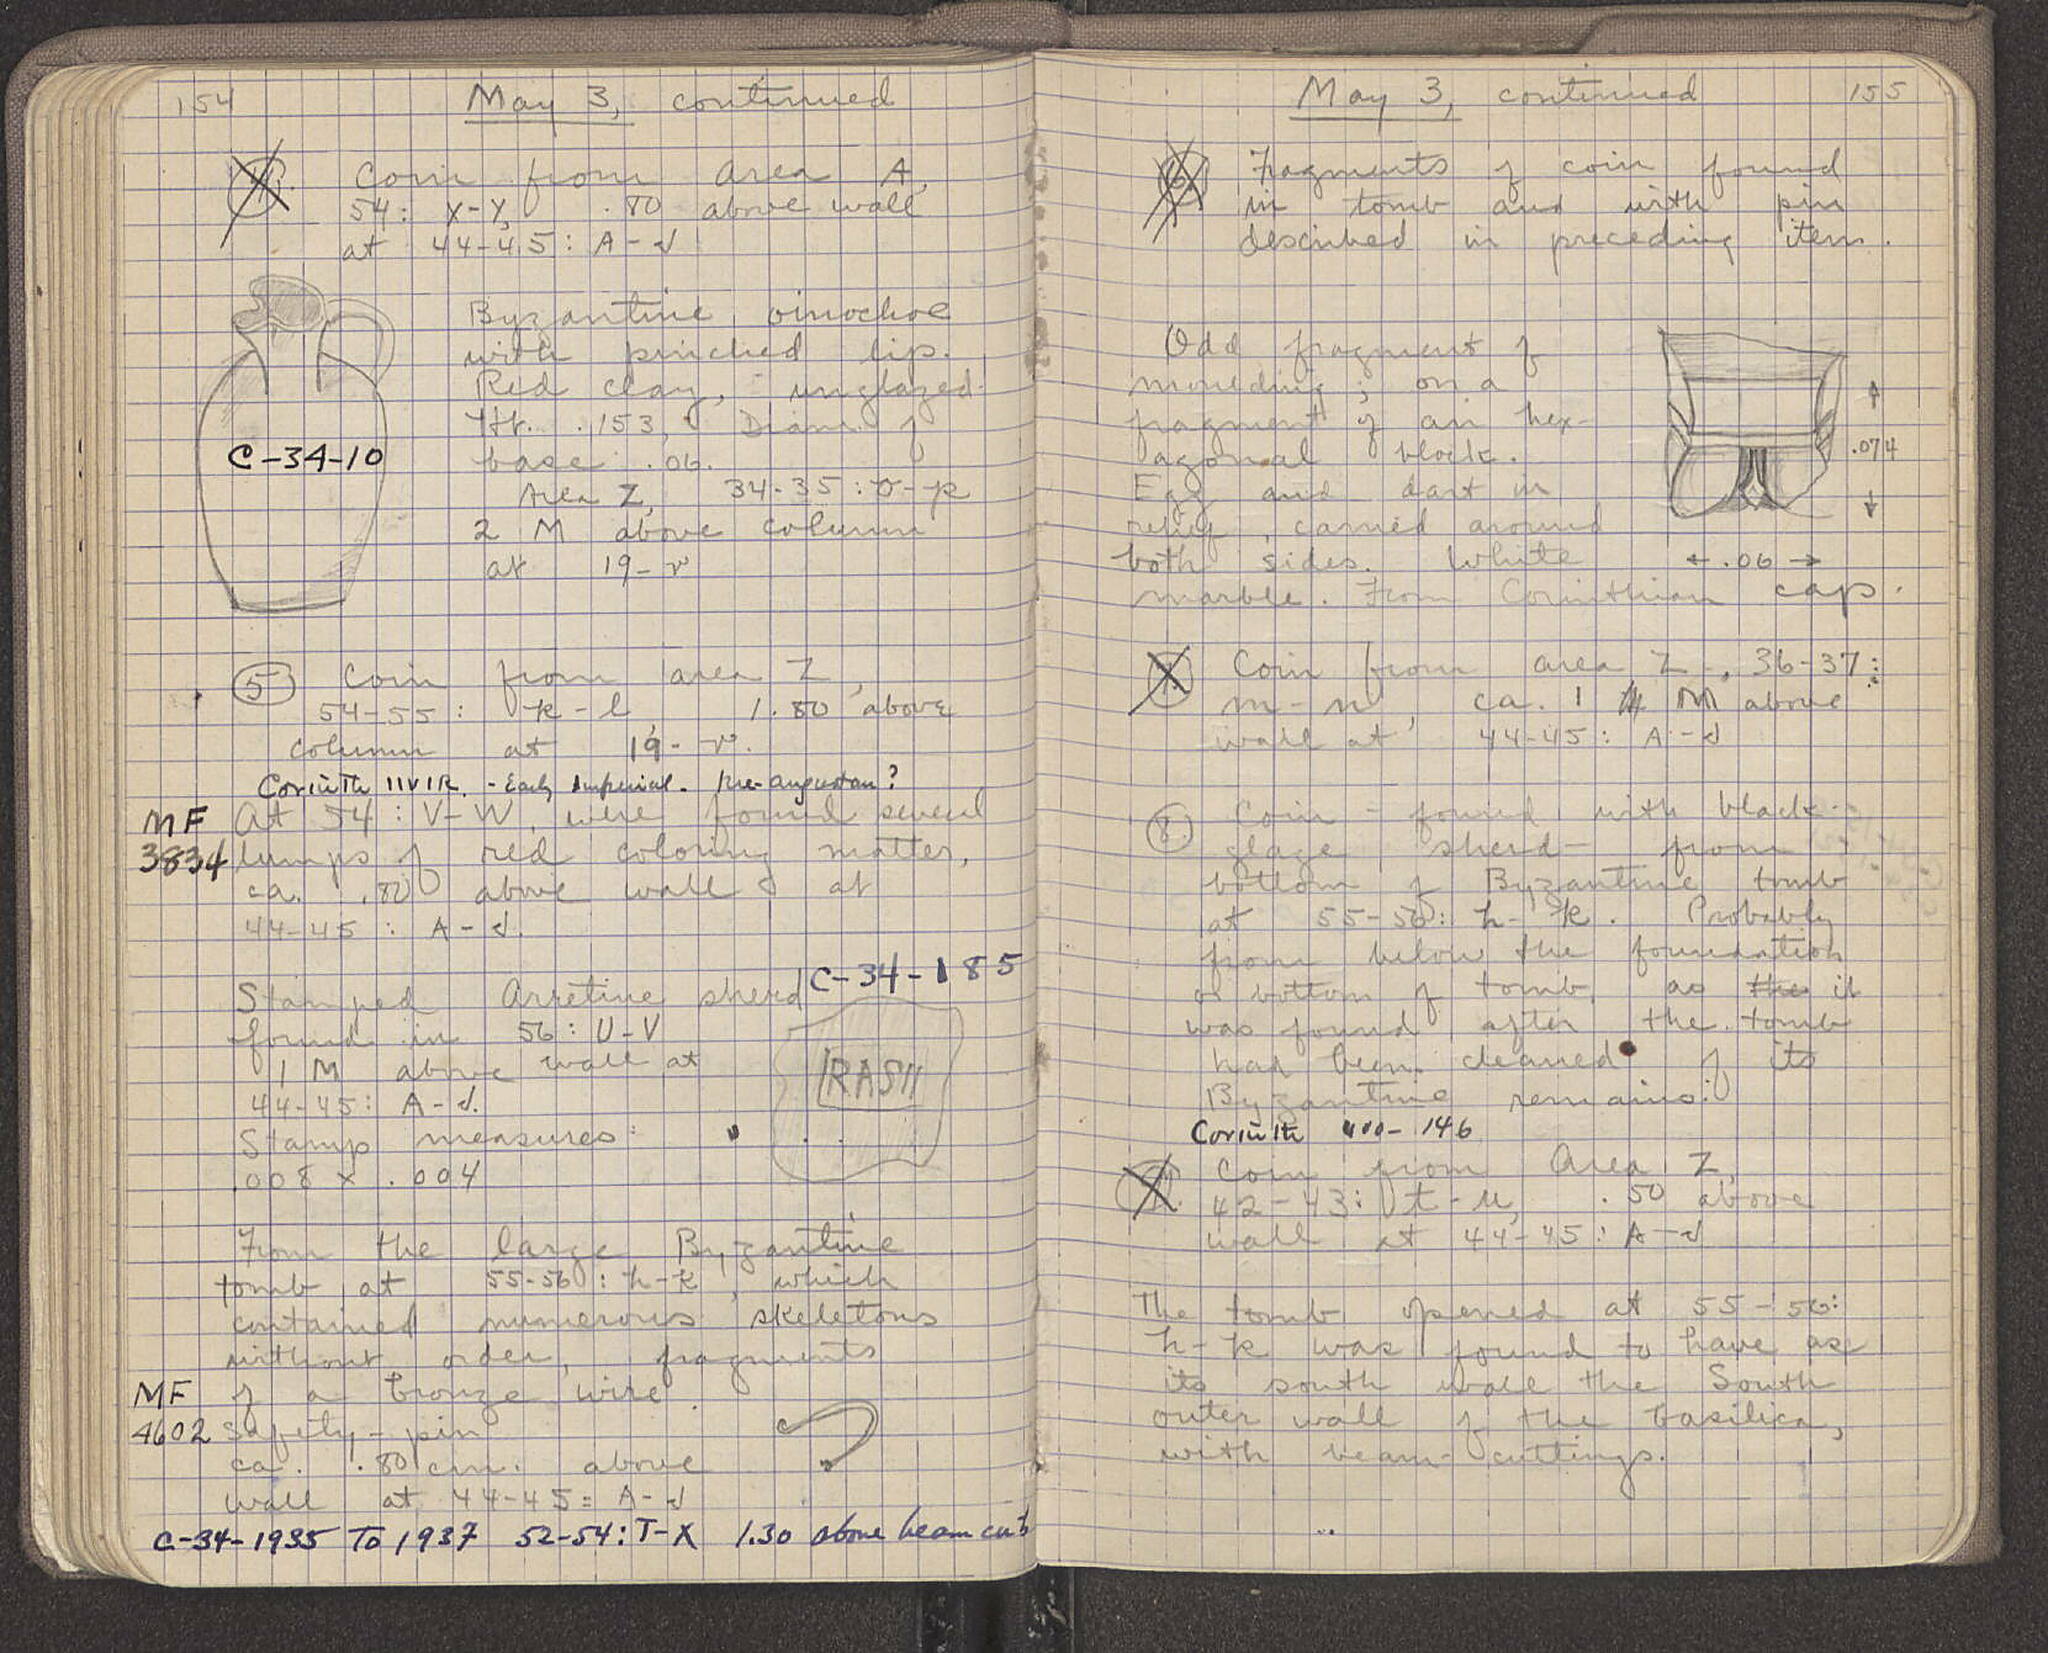 154
May 3, continued
4.
Coin from area A,
54: X-Y, .80 above wall
at 44-45: A-d
Byzantine oinochoe
with pinched lip.
Red clay, unglazed.
Ht. .153, Diam. of
base .06.
Area Z, 34-35: o-p
2 M above column
at 19-v
C-34-10
5 Coin from area Z,
54-55: k-l, 1.80 above
column at 19-v.
Corinth IIVIR. - Early Imperial. Pre-augustan?
MF
3834
At 54: V-W, were found several
lumps of red coloring matter,
ca. .80 above wall at
44-45: A-d.
C-34-185
Stamped Arretine sherd
found in 56: U-V
1 M above wall at
44-45: A-d.
Stamp measures:
.008 x .004
RASII
From the large Byzantine
tomb at 55-56: h-k, which
contained numerous skeletons
without order, fragments
MF
4602
of a bronze wire
safety-pin
ca. .80 cm. above
wall at 44-45: A-d
C-34-1935 To 1937 52-54: T-X 1.30 above beam cut
155
May 3, continued
6. Fragments of coin found
in tomb and with pin
described in preceding item.
Odd fragment of
moulding; on a
fragment of an hex-
agonal block.
Egg and dart in
relief, carried around
both sides. White
marble. From Corinthian cap.
.074
.06
7. Coin from area Z, 36-37:
m-n, ca. 1 M above
wall at 44-45: A-d
8. Coin - found with black-
glaze sherd - from
bottom of Byzantine tomb
at 55-56: h-k. Probably
from below the foundation
or bottom of tomb, as the it
was found after the tomb
had been cleaned of its
Byzantine remains.
Corinth 400-146
9. Coin from Area Z,
42-43: t-u, .50 above
wall at 44-45: A-d
The tomb opened at 55-56:
h-k was found to have as
its south wall the South
outer wall of the basilica,
with beam-cuttings.